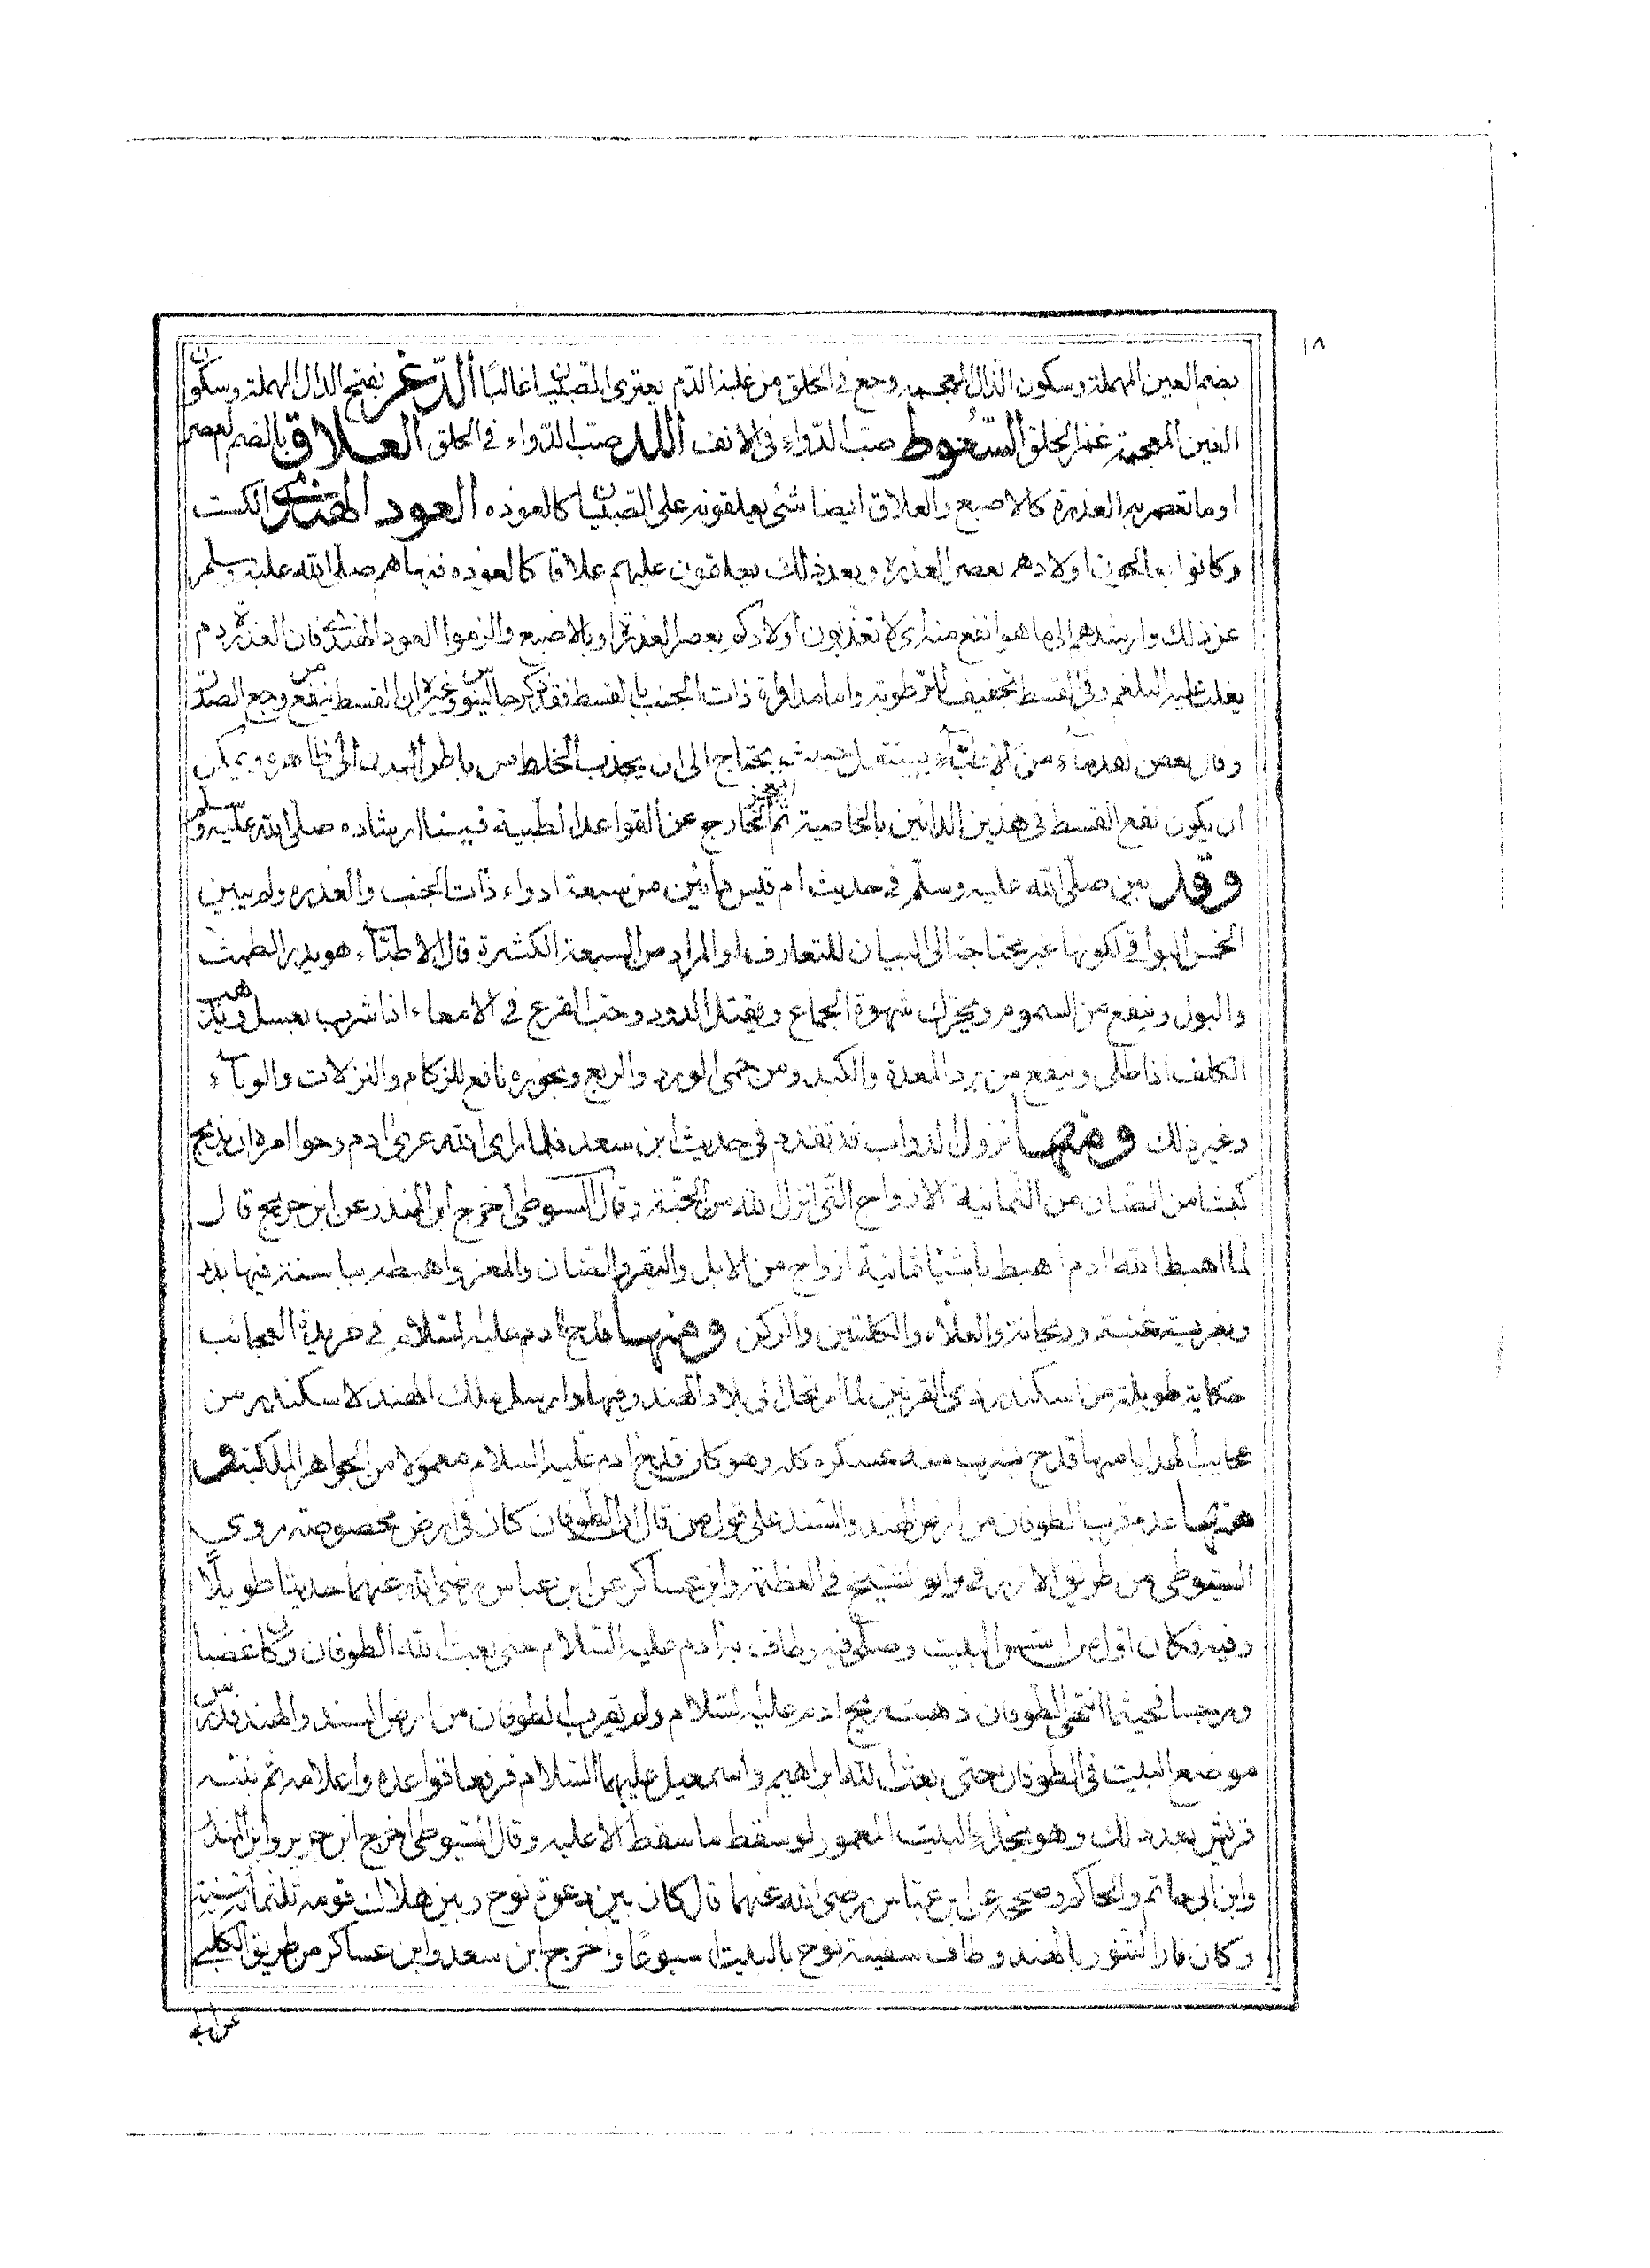 ١٨
بضم العين المهملة وسكون الذال المعجمه وجع فى الحلق من غلبة الدّم يعترى الصّبيان غالبًا الدّغر بفتح الدال المهملة وسكون
الغين المعجمة غمز الحلق السّعُوط صبّ الدّواء فى الانف اللد صبّ الدّواء فى الحلق العلاق بالضم العصر
او ما تعصر به العذرة كالاصبع والعلاق ايضا شئ يعلقونه على الصّبيان كالعوذه العود الهندى الكست
وكانوا يعالجون اولادهم بعصر العذرة وبعد ذلك يعلقون عليهم علاقا كالعوذه فنهاهم صلى الله عليه وسلم
عن ذلك وارشدهم الى ما هو انفع منه اى لا تعذبون اولادكم بعصر العذرة او بالاصبع والزموا العود الهندى فان العذرة دم
يغلب عليه البلغم وفى القسط تجفيف للرّطوبة واما مداواة ذات الجنب بالقسط فقد ذكر جالينوس وغيره ان القسط ينفع من وجع الصدر
وقال بعض القدماء من الاطبّاء يستعمل حيث يحتاج الى ان يجذب الخلط من باطن البدن الى ظاهره ويمكن
ان يكون نفع القسط فى هذين الدائين بالخاصية الخارج عن القواعد الطبية فبيننا ارشاده صلى الله عليه وسلم
وقد بين صلّى الله عليه وسلم فى حديث ام قيس دائين من سبعة ادواء ذات الجنب والعذره ولم يبين
الخمس البواقى لكونها غير محتاجة الى البيان للتعارف او المراد من السبعة الكثرة قال الاطبّاء هو يدر الطمث
والبول وينفع من السموم ويحرك شهوة الجماع ويقتل الدود وحبّ القرع فى الامعاء اذا شرب بعسل ويذهب
الكلف اذا طلى وينفع من برد المعدة والكبد ومن حمى الورد والربع وبخوره نافع للزكام والنزلات والوبآء
وغير ذلك ومنها نزول الدواب قد تقدم فى حديث ابن سعد فلما راى الله عرى ادم وحوا امره ان يذبح
كبشا من الضان من الثمانية الازواج التّى انزل الله من الجنّة وقال السيوطى اخرج ابن المنذر عن ابن جريج قال
لما اهبط الله ادم اهبط باشيا ثمانية ازواج من الابل والبقر والضان والمعز واهبطه بباسنة فيها بذر
وتعريشة عنبة وريحانة والعلاة والكلبتين والركن ومنها قدح ادم عليه السّلام فى خريدة العجائب
حكاية طويلة من اسكندر ذى القرنين لما ارتحال فى بلاد الهند وفيها وارسل ملك الهند لاسكندر من
عجايب الهدايا منها قدح يشرب منه عسكره كله وهو كان قدح ادم عليه السلام معمولا من الجواهر الملكية و
منها عدم قرب الطوفان من ارض الهند والسّند على قول من قال ان الطوفان كان فى ارض مخصوصة روى
السّيوطى من طريق الازرقى وابو الشيخ فى العظمة وابن عساكر عن ابن عباس رضى الله عنهما حديثا طويلًا
وفيه فكان اوّل من اسّس البيت وصلّى فيه وطاف به ادم عليه السّلام حتى بعث الله الطوفان وكان غضبا
ورجسا فحيثما انتهى الطوفان ذهب ريح ادم عليه السّلام ولم يقرب الطوفان من ارض السند والهند فدرس
موضع البيت فى الطوفان حتى بعث الله ابراهيم واسمعيل عليهما السّلام فرفعا قواعده واعلامه ثم بنته
قريش بعد ذلك وهو بحذاء البيت المعمور لو سقط ما سقط الا عليه وقال السّيوطى اخرج ابن جرير وابن المنذر
وابن ابى حاتم والحاكم وصححه عن ابن عبّاس رضى الله عنهما قال كان بين دعوة نوح وبين هلاك قومه ثلثمائة سنة
وكان فار التنور بالهند وطاف سفينة نوح بالبيت اسبوعًا واخرج ابن سعد وابن عساكر من طريق الكلبى
عن ابى